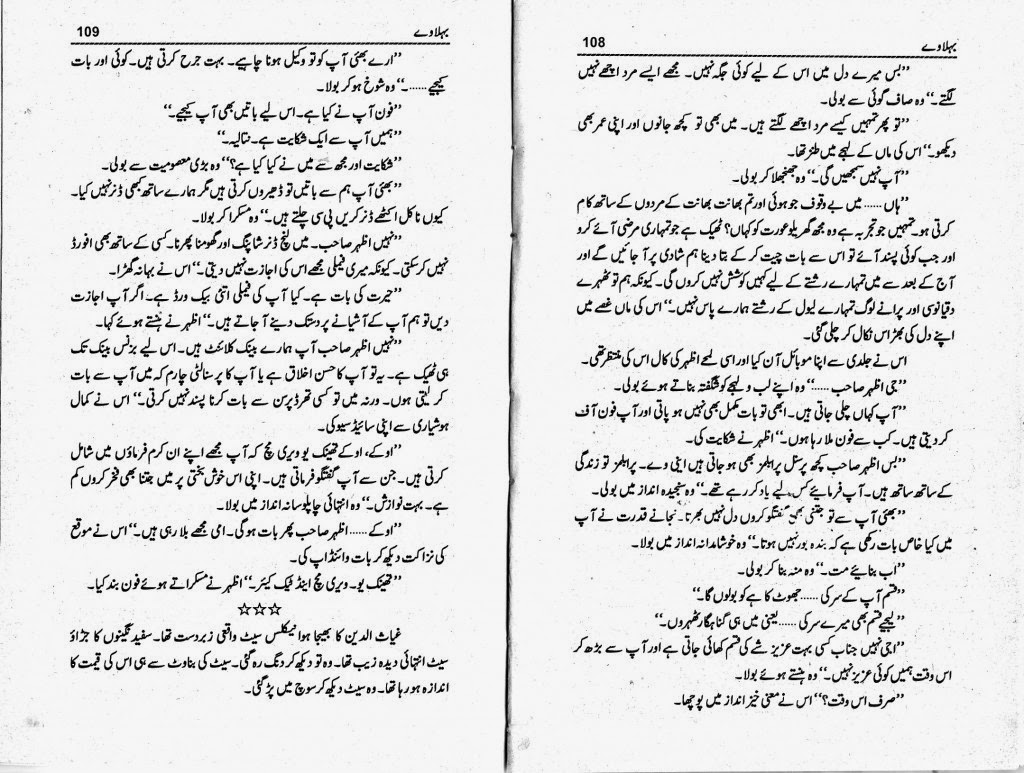 بہلاوے 108
’’بس میرے دل میں اس کے لیے کوئی جگہ نہیں۔ مجھے ایسے مرد اچھے نہیں
لگتے۔‘‘ وہ صاف گوئی سے بولی۔
’’تو پھر تمہیں کیسے مرد اچھے لگتے ہیں۔ میں بھی تو کچھ جانوں اور اپنی عمر بھی
دیکھو۔‘‘ اس کی ماں کے لہجے میں طنز تھا۔
’’آپ نہیں سمجھیں گی۔‘‘ وہ جھنجھلا کر بولی۔
’’ہاں ...... میں بے وقوف جو ہوئی اور تم بھانت بھانت کے مردوں کے ساتھ کام
کرتی ہو۔ تمہیں جو تجربہ ہے وہ مجھ گھریلو عورت کو کہاں؟ ٹھیک ہے جو تمہاری مرضی آئے کرو
اور جب کوئی پسند آئے تو اس سے بات چیت کر کے بتا دینا ہم شادی پر آ جائیں گے اور
آج کے بعد سے میں تمہارے رشتے کے لیے کہیں کوشش نہیں کروں گی۔ کیونکہ ہم تو ٹھہرے
دقیانوسی اور پرانے لوگ تمہارے لیول کے رشتے ہمارے پاس نہیں۔‘‘ اس کی ماں غصے میں
اپنے دل کی بھڑاس نکال کر چلی گئی۔
اس نے جلدی سے اپنا موبائل آن کیا اور اسی لمحے اظہر کی کال اس کی منتظر تھی۔
’’جی اظہر صاحب ......‘‘ وہ اپنے لب و لہجے کو شگفتہ بناتے ہوئے بولی۔
’’آپ کہاں چلی جاتی ہیں۔ ابھی تو بات مکمل بھی نہیں ہو پاتی اور آپ فون آف
کر دیتی ہیں۔ کب سے فون ملا رہا ہوں۔‘‘ اظہر نے شکایت کی۔
’’بس اظہر صاحب کچھ پرسنل پرابلمز بھی ہو جاتی ہیں اینی وے۔ پرابلمز تو زندگی
کے ساتھ ساتھ ہیں۔ آپ فرمائیے کس لیے یاد کر رہے تھے۔‘‘ وہ سنجیدہ انداز میں بولی۔
’’بھئی آپ سے تو جتنی بھی گفتگو کروں دل نہیں بھرتا۔ نجانے قدرت نے آپ
میں کیا خاص بات رکھی ہے کہ بندہ بور نہیں ہوتا۔‘‘ وہ خوشامدانہ انداز میں بولا۔
’’اب بنائیے مت۔‘‘ وہ منہ بنا کر بولی۔
’’قسم آپ کے سر کی ...... جھوٹ کا ہے کو بولوں گا۔‘‘
’’لیجیے قسم بھی میرے سر کی ...... یعنی میں ہی گناہگار ٹھہروں۔‘‘
’’اجی نہیں جناب کسی بہت عزیز شے کی قسم کھائی جاتی ہے اور آپ سے بڑھ کر
اس وقت ہمیں کوئی عزیز نہیں۔‘‘ وہ ہنستے ہوئے بولا۔
’’صرف اس وقت؟‘‘ اس نے معنی خیز انداز میں پوچھا۔
بہلاوے 109
’’ارے بھئی آپ کو تو وکیل ہونا چاہیے۔ بہت جرح کرتی ہیں۔ کوئی اور بات
کیجیے ......۔‘‘ وہ شوخ ہو کر بولا۔
’’فون آپ نے کیا ہے۔ اس لیے باتیں بھی آپ کیجیے۔‘‘
’’ہمیں آپ سے ایک شکایت ہے۔ نتالیہ۔‘‘
’’شکایت اور مجھ سے میں نے کیا کیا ہے؟‘‘ وہ بڑی معصومیت سے بولی۔
’’بھئی آپ ہم سے باتیں تو ڈھیروں کرتی ہیں مگر ہمارے ساتھ کبھی ڈنر نہیں کیا۔
کیوں نا کل اکٹھے ڈنر کریں پی سی چلتے ہیں۔‘‘ وہ مسکرا کر بولا۔
’’نہیں اظہر صاحب۔ میں لنچ ڈنر شاپنگ اور گھومنا پھرنا۔ کسی کے ساتھ بھی افورڈ
نہیں کر سکتی۔ کیونکہ میری فیملی مجھے اس کی اجازت نہیں دیتی۔‘‘ اس نے بہانہ گھڑا۔
’’حیرت کی بات ہے۔ کیا آپ کی فیملی اتنی بیک ورڈ ہے۔ اگر آپ اجازت
دیں تو ہم آپ کے آشیانے پر دستک دینے آ جاتے ہیں۔‘‘ اظہر نے ہنستے ہوئے کہا۔
’’نہیں اظہر صاحب آپ ہمارے بینک کلائنٹ ہیں۔ اس لیے بزنس بینک تک
ہی ٹھیک ہے۔ یہ تو آپ کا حسن اخلاق ہے یا آپ کا پرسنالٹی چارم کہ میں آپ سے بات
کر لیتی ہوں۔ ورنہ میں تو کسی تھرڈ پرسن سے بات کرنا پسند نہیں کرتی۔‘‘ اس نے کمال
ہوشیاری سے اپنی سائیڈ سیو کی۔
’’اوکے، اوکے تھینک یو ویری مچ کہ آپ مجھے اپنے ان کرم فرماؤں میں شامل
کرتی ہیں۔ جن سے آپ گفتگو فرماتی ہیں۔ اپنی اس خوش بختی پر میں جتنا بھی فخر کروں کم
ہے۔ بہت نوازش۔‘‘ وہ انتہائی چاپلوسانہ انداز میں بولا۔
’’اوکے ...... اظہر صاحب پھر بات ہو گی۔ امی مجھے بلا رہی ہیں۔‘‘ اس نے موقع
کی نزاکت دیکھ کر بات وائنڈ اپ کی۔
’’تھینک یو۔ ویری مچ اینڈ ٹیک کیئر۔‘‘ اظہر نے مسکراتے ہوئے فون بند کیا۔
☆☆☆
غیاث الدین کا بھیجا ہوا نیکلس سیٹ واقعی زبردست تھا۔ سفید نگینوں کا جڑاؤ
سیٹ انتہائی دیدہ زیب تھا۔ وہ تو دیکھ کر دنگ رہ گئی۔ سیٹ کی بناوٹ سے ہی اس کی قیمت کا
اندازہ ہو رہا تھا۔ وہ سیٹ دیکھ کر سوچ میں پڑ گئی۔